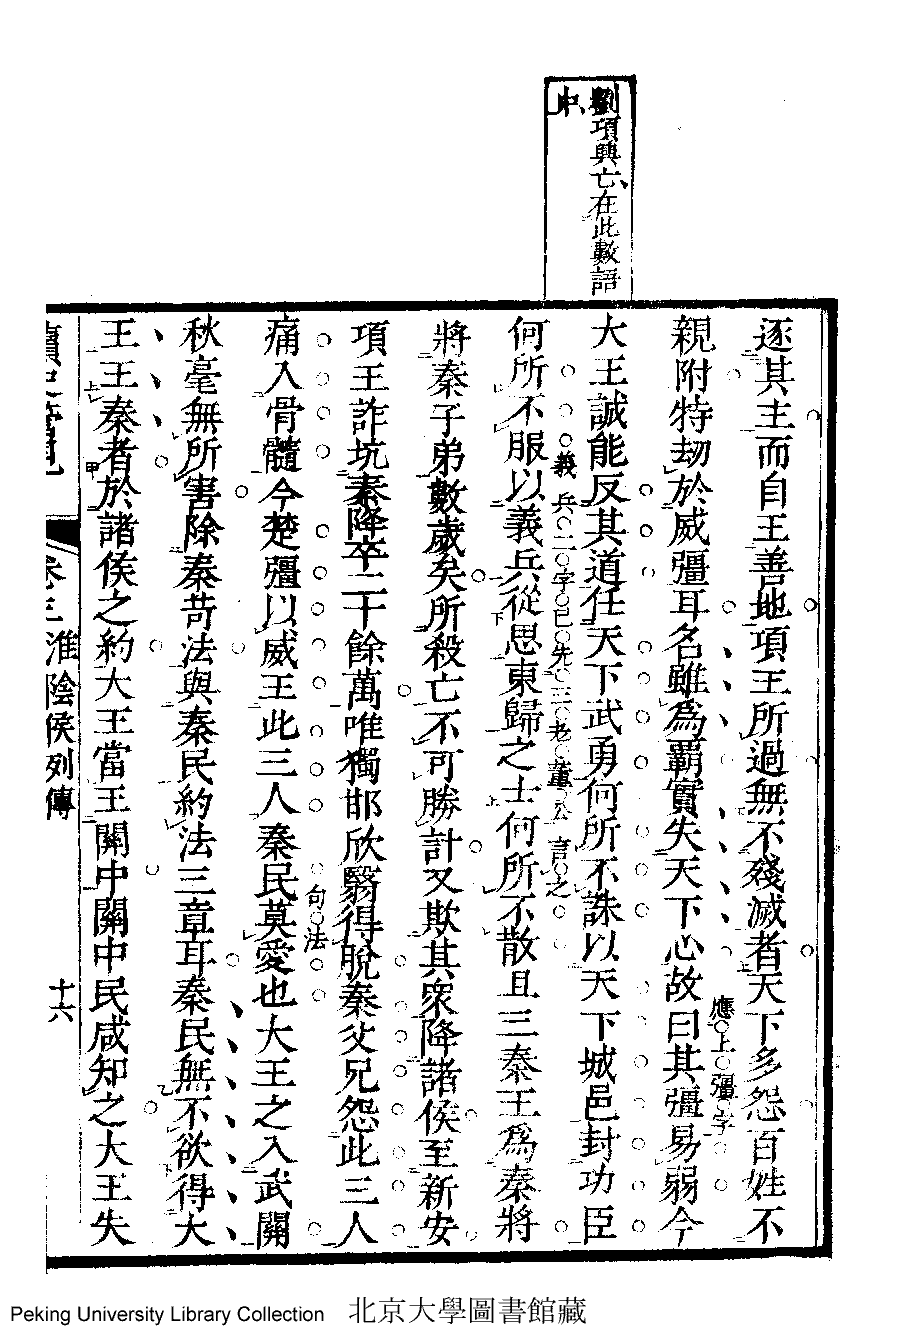 劉項興亡在此數語
中
逐其主而自王善地項王所過無不殘滅者天下多怨百姓不
親附特劫於威彊耳名雖爲霸實失天下心故曰其彊易弱今
應上彊字
大王誠能反其道任天下武勇何所不誅以天下城邑封功臣
何所不服以義兵從思東歸之士何所不散且三秦王爲秦將
義兵二字已先三老董公言之
將秦子弟數歲矣所殺亡不可勝計又欺其衆降諸侯至新安
項王詐坑秦降卒二十餘萬唯獨邯欣翳得脫秦父兄怨此三人
痛入骨髓今楚彊以威王此三人秦民莫愛也大王之入武關
句法
秋毫無所害除秦苛法與秦民約法三章耳秦民無不欲得大
王王秦者於諸侯之約大王當王關中關中民咸知之大王失
卷三 淮陰侯列傳 十六
Peking University Library Collection 北京大學圖書館藏